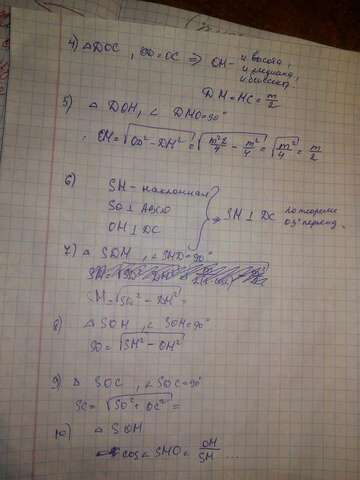 4) △DOC, OD=OC ⇒ OH- и высота,
и медиана,
и биссект.
DH=HC=m/2
5) △ DOH, ∠ DHO=90°
OH=√(OD²-DH²)=√(m²2/4 - m²/4)=√(m²/4)=m/2
6) SH-наклонная
SO⊥ABCD
OH⊥DC
⇒ SH⊥DC по теореме
о 3ˣ перпенд.
7) △ SDH, ∠SHD=90°
SH=√(SD²-DH²)=
8) △ SOH, ∠ SOH=90°
SO=√(SH²-OH²)
9) △ SOC, ∠SOC=90°
SC=√(SO²+OC²)=
10) △ SOH
cos∠SHO=OH/SH ...